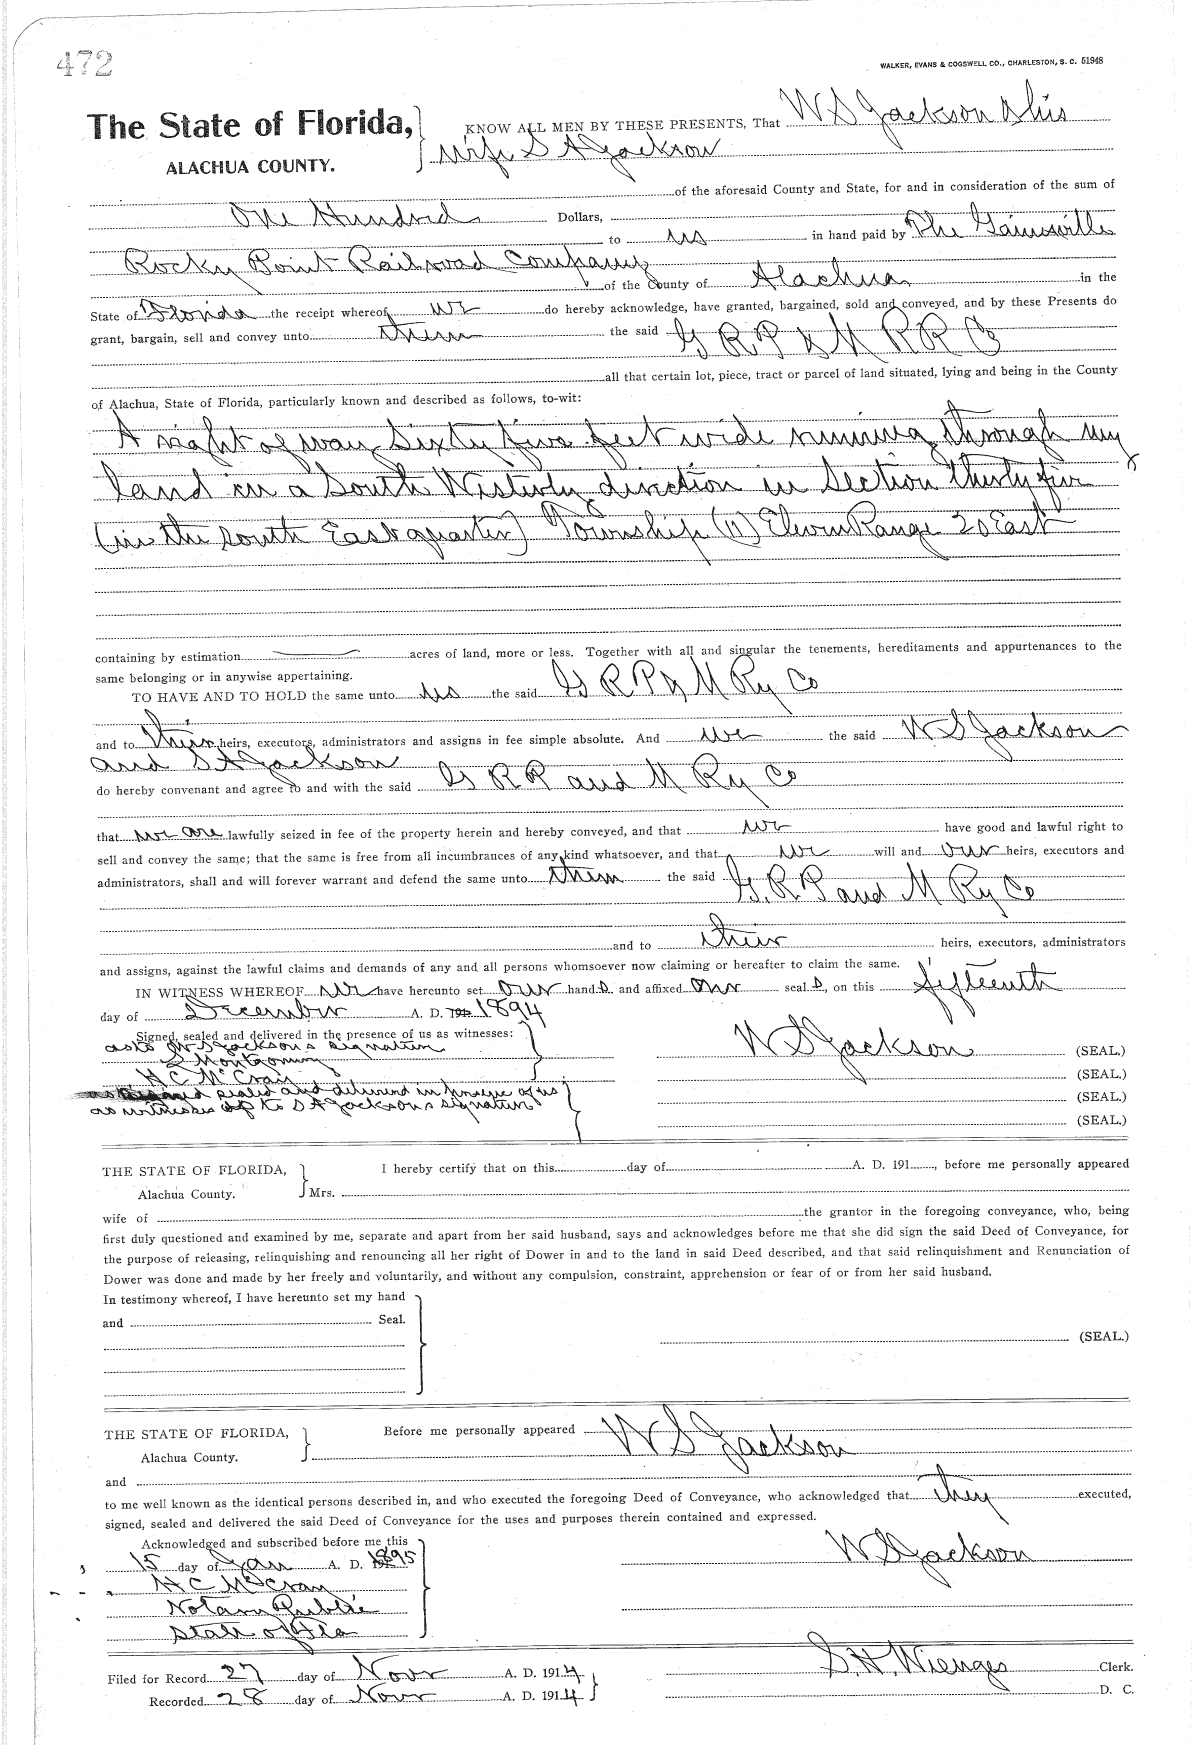 472
WALKER, EVANS & COGSWELL CO., CHARLESTON, S. C. 51948
The State of Florida, KNOW ALL MEN BY THESE PRESENTS, That W S Jackson & his
ALACHUA COUNTY. wife S A Jackson
of the aforesaid County and State, for and in consideration of the sum of
One Hundred Dollars,
to us in hand paid by The Gainsville
Rocky Point Railroad Company
of the County of Alachua in the
State of Florida the receipt whereof we do hereby acknowledge, have granted, bargained, sold and conveyed, and by these Presents do
grant, bargain, sell and convey unto them the said G R P & M R R Co
all that certain lot, piece, tract or parcel of land situated, lying and being in the County
of Alachua, State of Florida, particularly known and described as follows, to-wit:
A right of way Sixty five feet wide running through my
land in a South Westerly direction in Section thirty five
(in the South East quarter) Township (11) Eleven Range 20 East
containing by estimation acres of land, more or less. Together with all and singular the tenements, hereditaments and appurtenances to the
same belonging or in anywise appertaining.
TO HAVE AND TO HOLD the same unto us the said G R P & M Ry Co
and to their heirs, executors, administrators and assigns in fee simple absolute. And we the said W S Jackson
and S A Jackson
do hereby convenant and agree to and with the said G R P and M Ry Co
that we are lawfully seized in fee of the property herein and hereby conveyed, and that we have good and lawful right to
sell and convey the same; that the same is free from all incumbrances of any kind whatsoever, and that we will and our heirs, executors and
administrators, shall and will forever warrant and defend the same unto them the said G. R. P and M Ry Co
and to their heirs, executors, administrators
and assigns, against the lawful claims and demands of any and all persons whomsoever now claiming or hereafter to claim the same.
IN WITNESS WHEREOF we have hereunto set our hands and affixed our seals, on this fifteenth
day of December A. D. 1894
Signed, sealed and delivered in the presence of us as witnesses:
as to W S Jacksons signature
S Montgomery
W S Jackson (SEAL.)
H C McCrain (SEAL.)
sealed and delivered in presence of us (SEAL.)
as witnesses to S A Jacksons signature (SEAL.)
THE STATE OF FLORIDA, I hereby certify that on this day of A. D. 191 , before me personally appeared
Alachua County. Mrs.
wife of the grantor in the foregoing conveyance, who, being
first duly questioned and examined by me, separate and apart from her said husband, says and acknowledges before me that she did sign the said Deed of Conveyance, for
the purpose of releasing, relinquishing and renouncing all her right of Dower in and to the land in said Deed described, and that said relinquishment and Renunciation of
Dower was done and made by her freely and voluntarily, and without any compulsion, constraint, apprehension or fear of or from her said husband.
In testimony whereof, I have hereunto set my hand
and Seal.
(SEAL.)
THE STATE OF FLORIDA, Before me personally appeared W S Jackson
Alachua County.
and
to me well known as the identical persons described in, and who executed the foregoing Deed of Conveyance, who acknowledged that they executed,
signed, sealed and delivered the said Deed of Conveyance for the uses and purposes therein contained and expressed.
Acknowledged and subscribed before me this
15 day of Jan A. D. 1895
W S Jackson
H C McCrain
Notary Public
State of Fla
Filed for Record 27 day of Novr A. D. 1914 S. H. Wienges Clerk.
Recorded 28 day of Novr A. D. 1914 D. C.